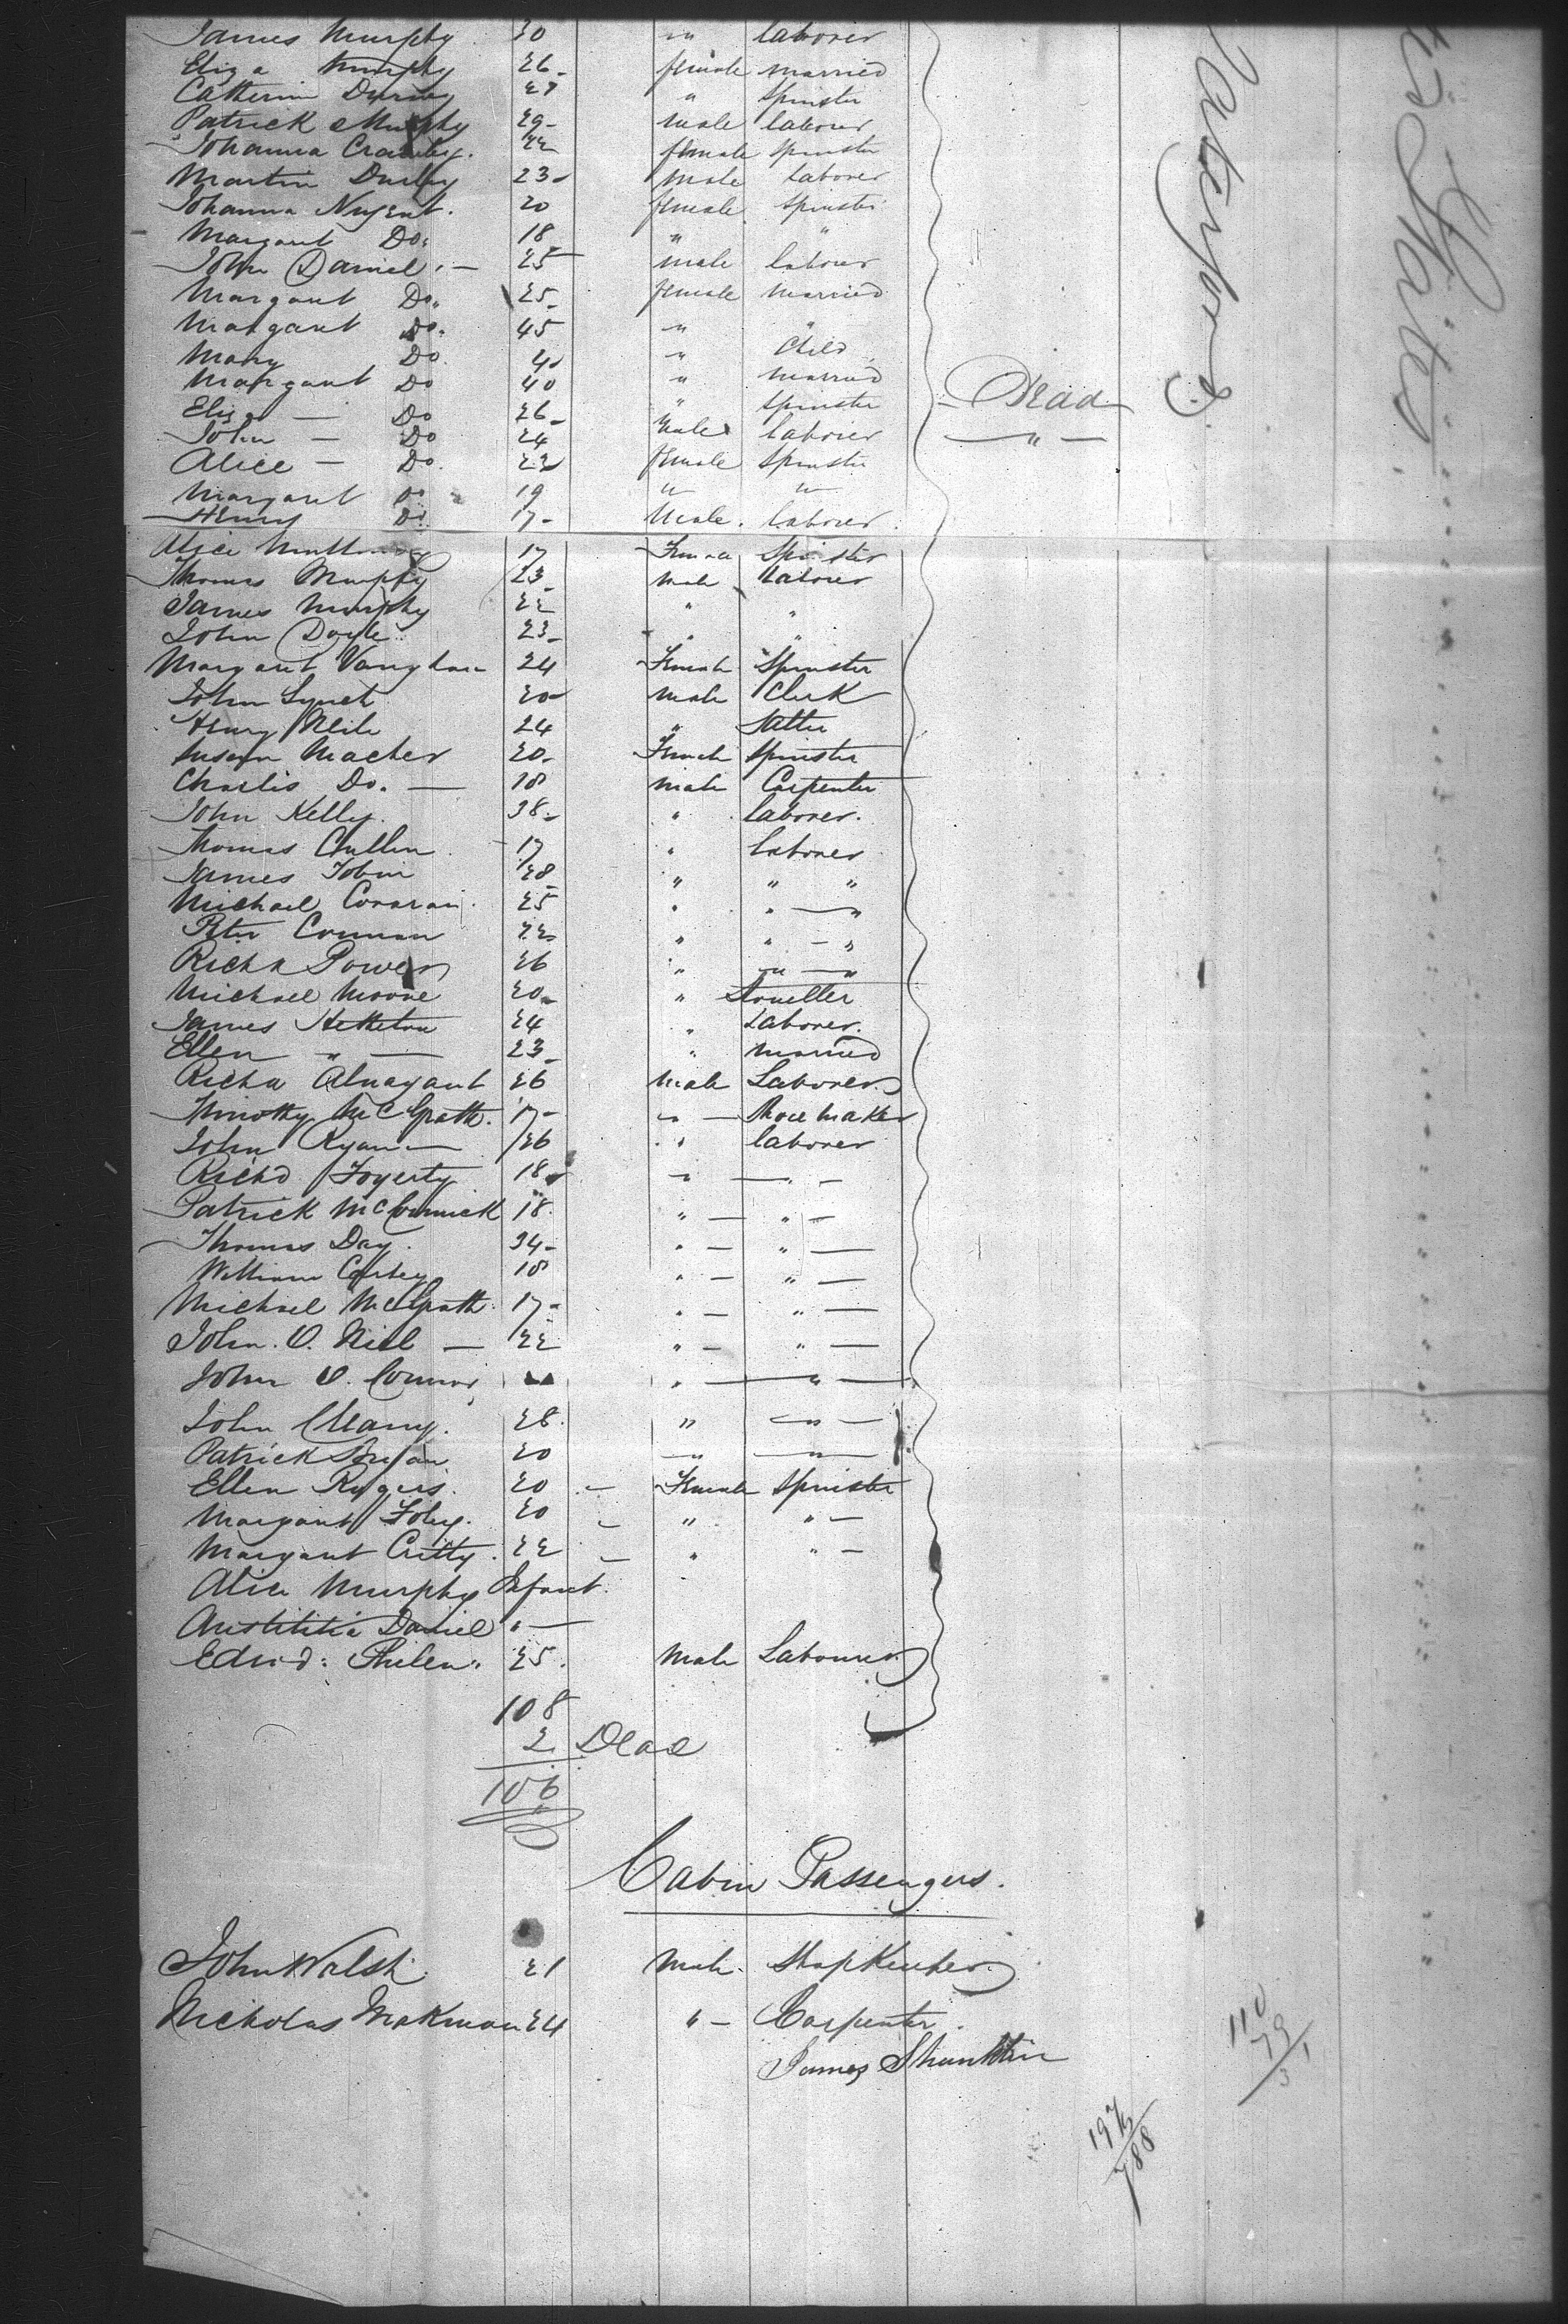 James Murphy 30 " laborer
Eliza Murphy 26 female married
Catherin 27 " Spinster
Patrick Murphy 29 male laborer
Johanna Crowley 22 female Spinster
Martin 23 male laborer
Johanna Nugent. 20 female Spinster
Margaret Do. 18 " "
John Daniel 25 male laborer
Margaret Do. 25 female married
Margaret Do. 45 " "
Mary Do 4 " Child
Margaret Do 40 " married
Eliza — Do 26 " Spinster Dead
John — Do 24 male laborer — " —
Alice — Do. 22 female Spinster
Margaret Do 19 " "
Henry Do 17 Male. laborer
Alice 17 Female Spinster
Thomas Murphy 23 male laborer
James Murphy 22 " "
John Doyle 23 " "
Margaret Vaughan 24 Female Spinster
John Lynch 20 male Clerk
Henry 24 "
Susan Macher 20 Female Spinster
Charlis Do. — 18 male Carpenter
John Kelly. 38 " laborer.
Thomas Cullen 17 " laborer
James Tobin 28 " " "
Michael 25 " " — "
Peter 22 " " — "
Richd Power 26 " " — "
Michael Moore 20 "
James 24 " Laborer.
Ellen " — 23 " married
Richd 26 male Laborer
Timothy McGrath. 17 " — Shoe maker
John Ryan — 26 " laborer
Richd Fogerty 18 " — " —
Patrick McCormick 18 " — " —
Thomas Day. 34 " — " —
William 18 " — " —
Michael McGrath 17 " — " —
John. O. Niel — 22 " — " —
John O. Connor " — " —
John Cleary. 28. " — " —
Patrick 20 — " — " —
Ellen Rogers. 20 — Female Spinster
Margaret Foley. 20 " " —
Margaret 22 — " " —
Alice Murphy Infant.
Daniel " —
25. Male Labourer
108
2 Dead
106
Cabin Passengers.
John Walsh 21 Male. Shopkeeper
Nicholas 24 " — Carpenter.
James
110
79
197
788
States